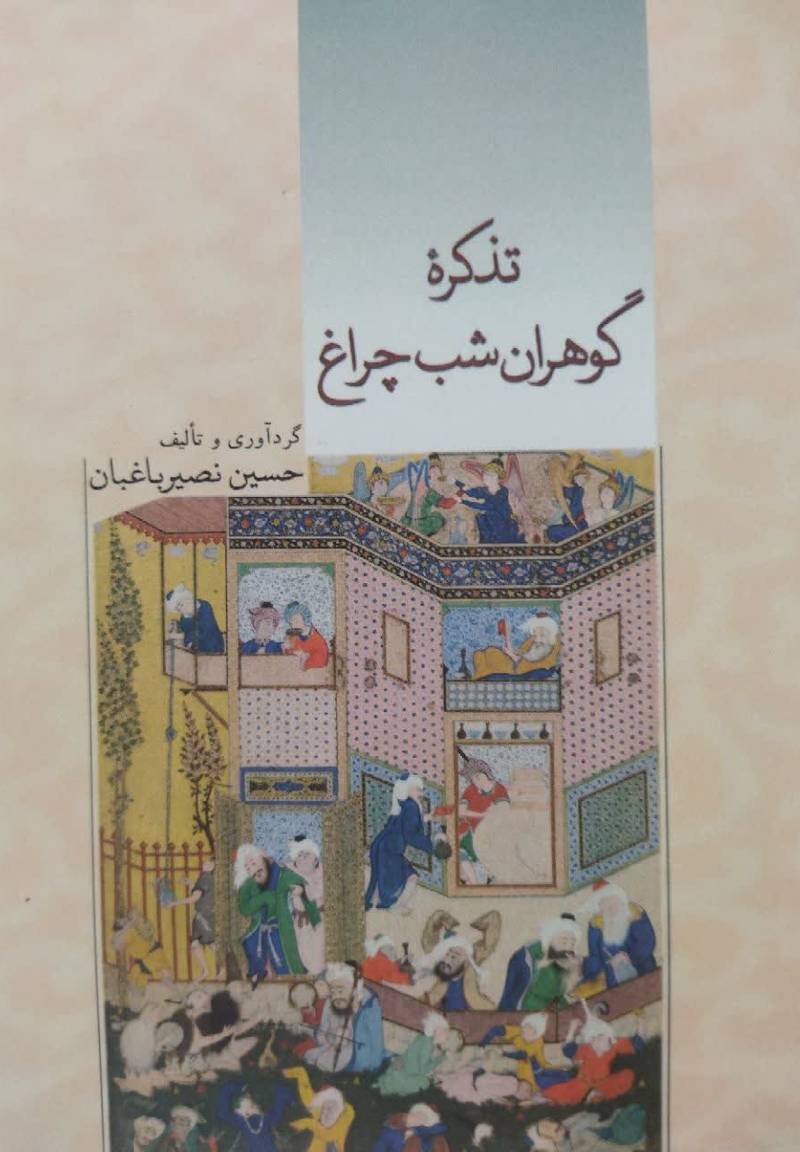 تذکرهٔ
گوهران شب چراغ
گردآوری و تألیف
حسین نصیرباغبان